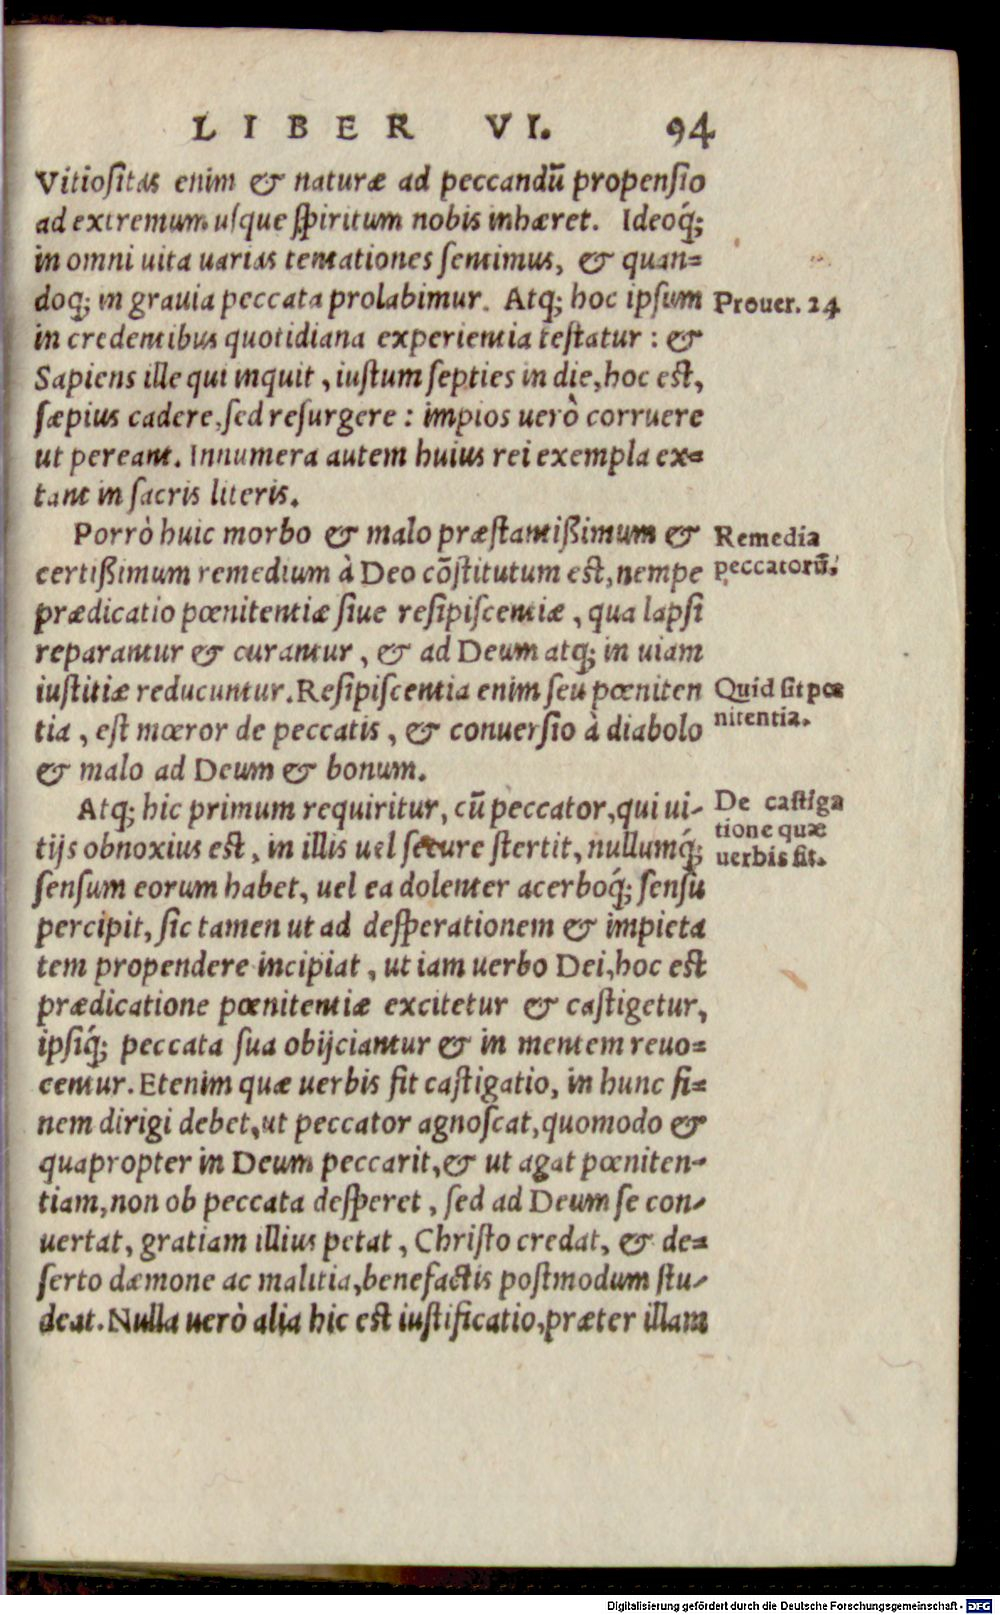 LIBER VI. 94
Vitiositas enim & naturæ ad peccandū propensio
ad extremum usque spiritum nobis inhæret. Ideoq́;
in omni uita uarias tentationes sentimus, & quan=
doq; in grauia peccata prolabimur. Atq; hoc ipsum
Prouer. 24
in credentibus quotidiana experientia testatur : &
Sapiens ille qui inquit, iustum septies in die, hoc est,
sæpius cadere, sed resurgere : impios uerò corruere
ut pereant. Innumera autem huius rei exempla ex=
tant in sacris literis.
Porrò huic morbo & malo præstantißimum &
Remedia
certißimum remedium à Deo cõstitutum est, nempe
peccatorū.
prædicatio pœnitentiæ siue resipiscentiæ, qua lapsi
reparantur & curantur, & ad Deum atq; in uiam
iustitiæ reducuntur. Resipiscentia enim seu pœniten
Quid sit pœ
tia, est mœror de peccatis, & conuersio à diabolo
nitentia.
& malo ad Deum & bonum.
Atq; hic primum requiritur, cū peccator, qui ui-
De castiga
tijs obnoxius est, in illis uel secure stertit, nullumq́;
tione quæ
uerbis fit.
sensum eorum habet, uel ea dolenter acerboq́; sensu
percipit, sic tamen ut ad desperationem & impieta
tem propendere incipiat, ut iam uerbo Dei, hoc est
prædicatione pœnitentiæ excitetur & castigetur,
ipsiq́; peccata sua obijciantur & in mentem reuo=
centur. Etenim quæ uerbis fit castigatio, in hunc fi=
nem dirigi debet, ut peccator agnoscat, quomodo &
quapropter in Deum peccarit, & ut agat pœniten-
tiam, non ob peccata desperet, sed ad Deum se con-
uertat, gratiam illius petat, Christo credat, & de=
serto dæmone ac malitia, benefactis postmodum stu-
deat. Nulla uerò alia hic est iustificatio, præter illam
Digitalisierung gefördert durch die Deutsche Forschungsgemeinschaft - DFG